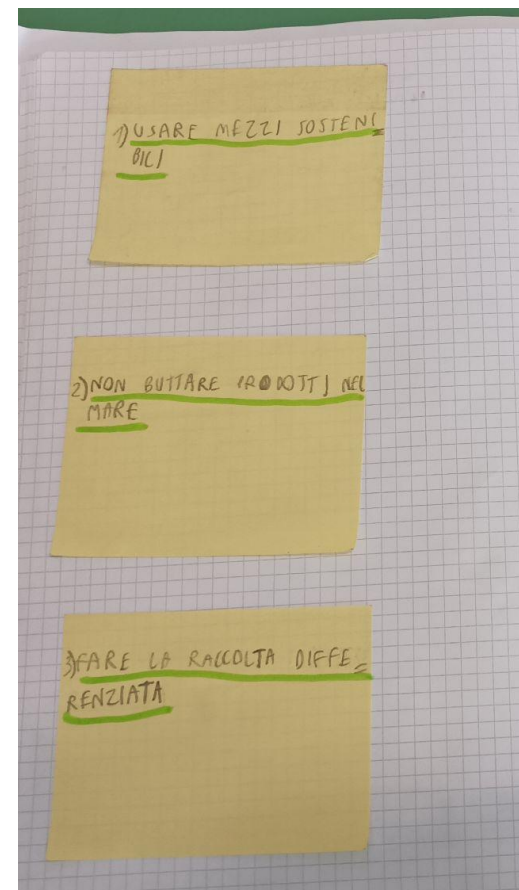 1) USARE MEZZI SOSTENI=
BILI
2) NON BUTTARE PRODOTTI NEL
MARE
3) FARE LA RACCOLTA DIFFE=
RENZIATA